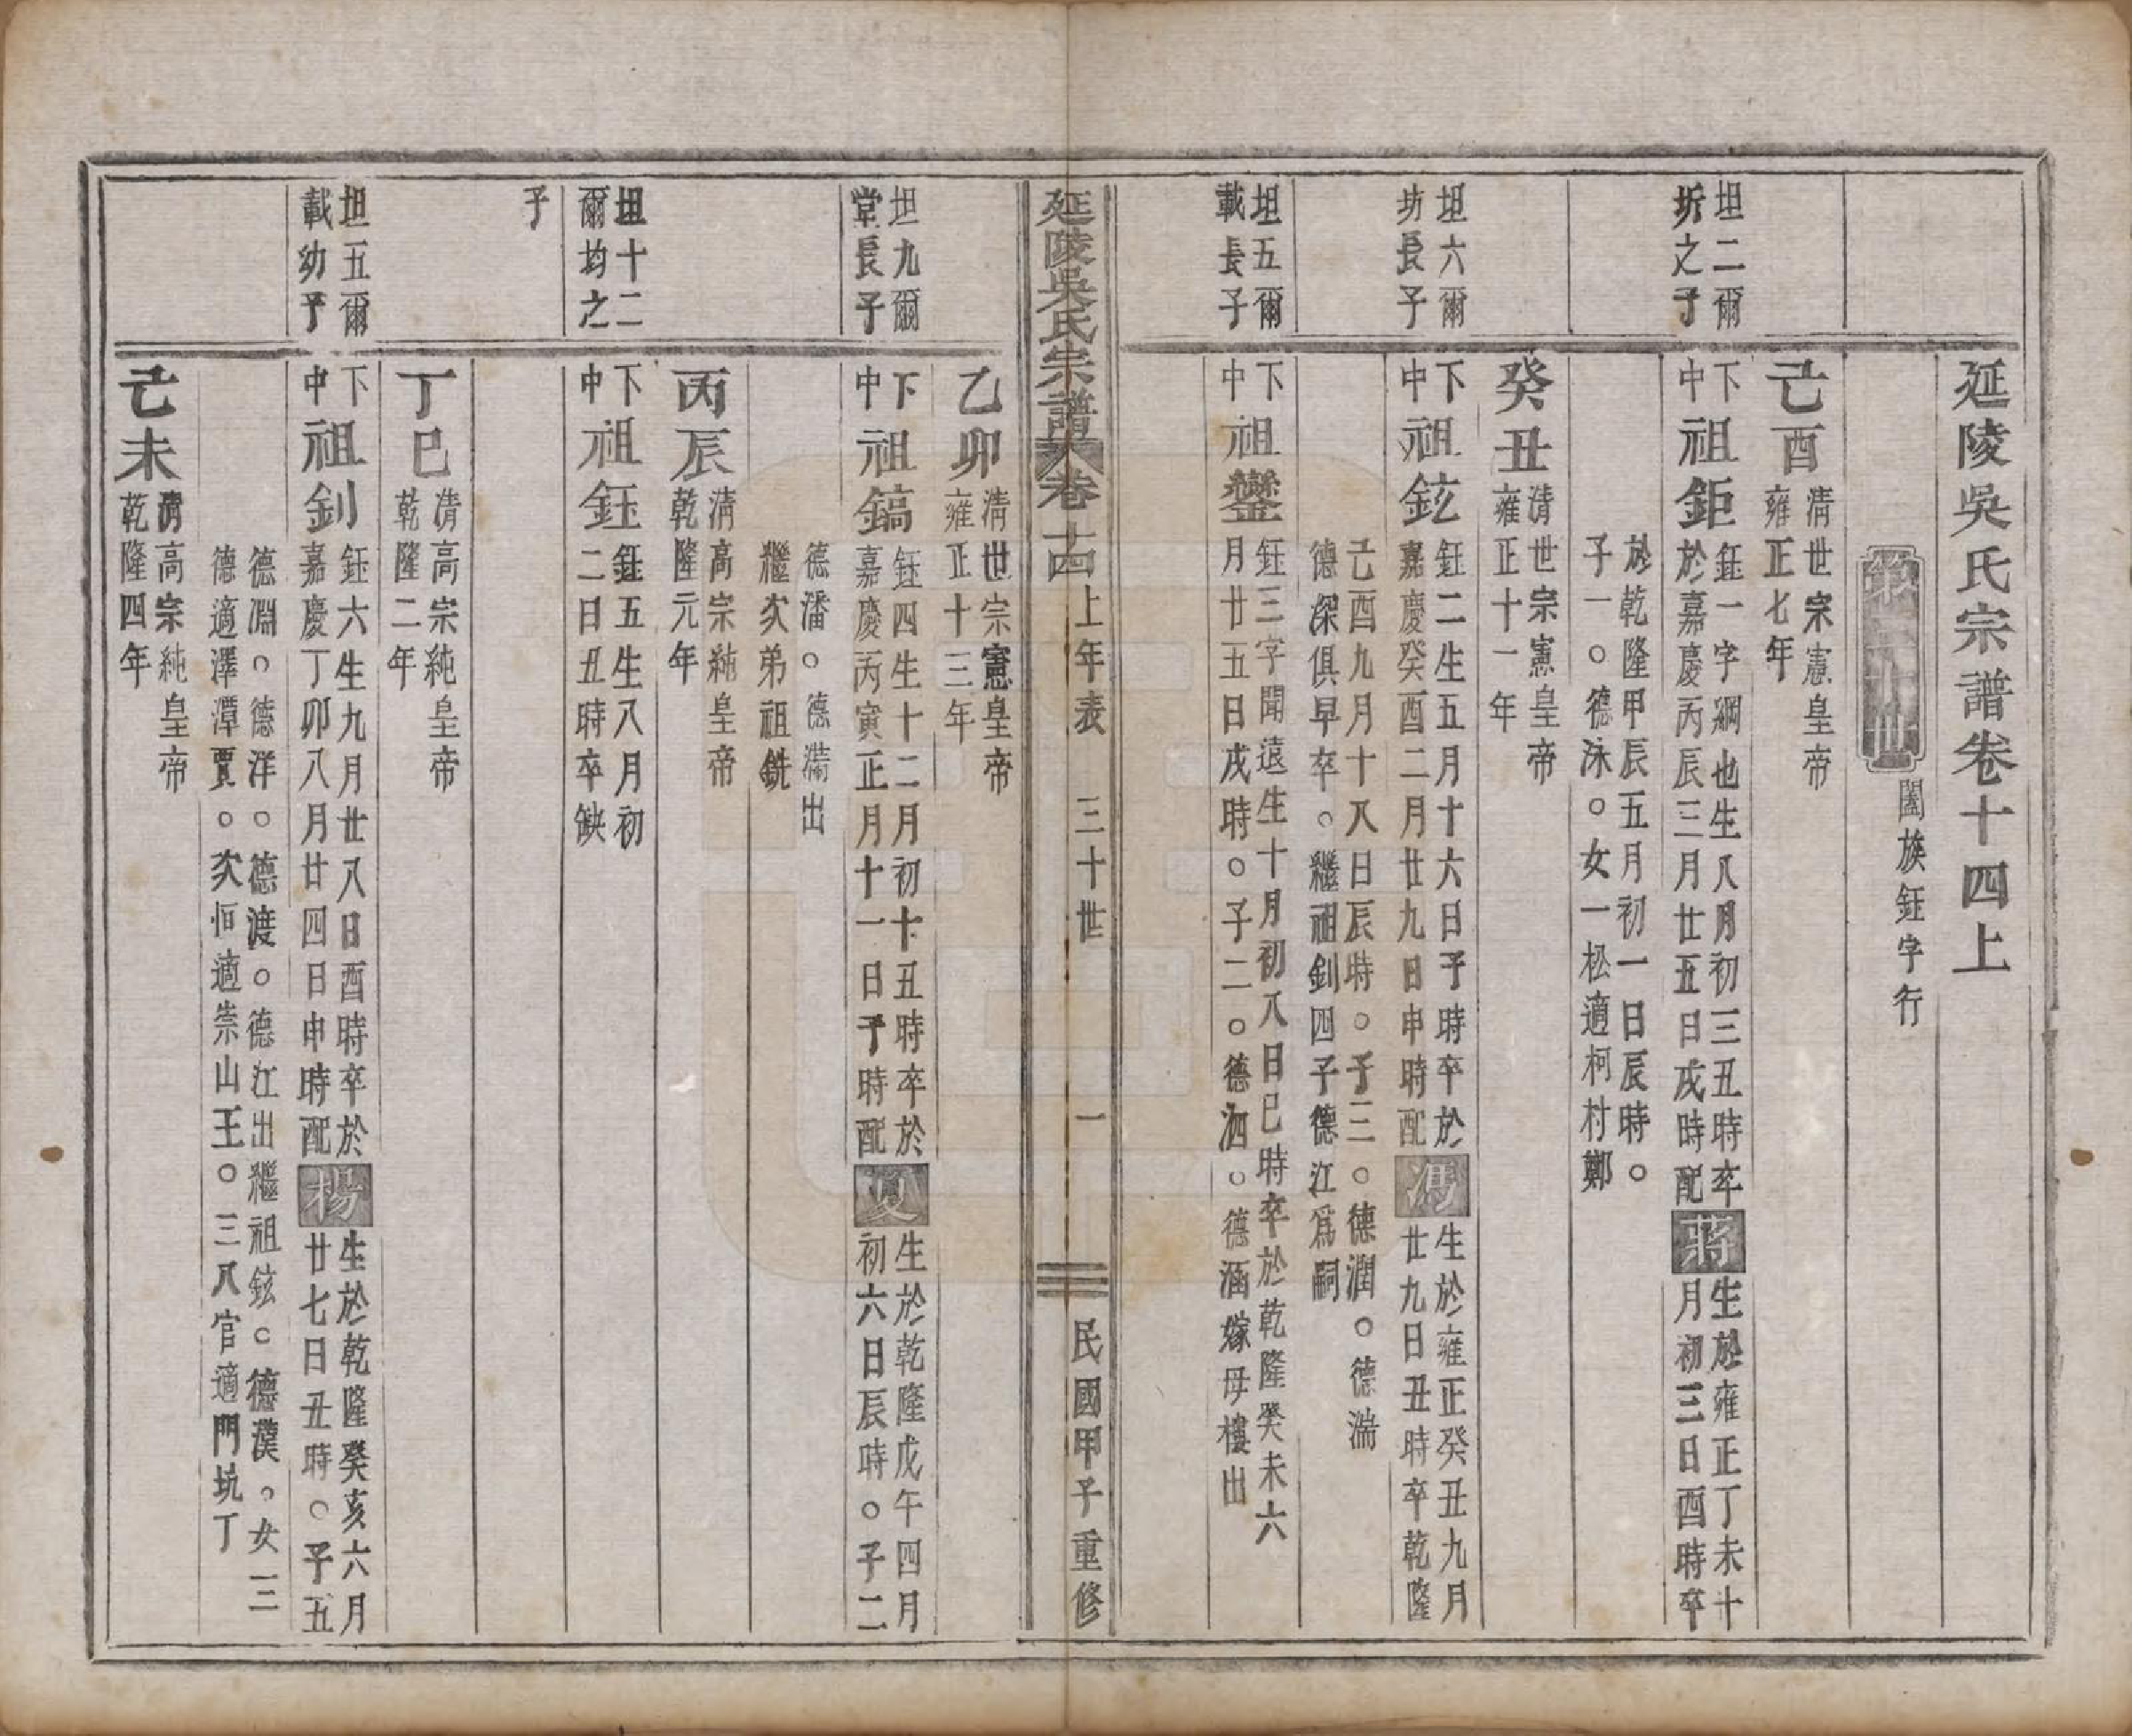 延陵吳氏宗譜卷十四上
第三十世
闔族鈺字行
己酉
清世宗憲皇帝
雍正七年
坦二爾
圻之子
下
中
祖鉅
鈺一字綱也生八月初三丑時卒
於嘉慶丙辰三月廿五日戌時配
蔣
生於雍正丁未十
月初三日酉時卒
於乾隆甲辰五月初一日辰時。
子一。德泳。女一松適柯村鄭
癸丑
清世宗憲皇帝
雍正十一年
坦六爾
坊長子
下
中
祖鉉
鈺二生五月十六日子時卒於
嘉慶癸酉二月廿九日申時配
馮
生於雍正癸丑九月
廿九日丑時卒乾隆
己酉九月十八日辰時。子三。德潤。德湍
德深俱早卒。繼祖釗四子德江爲嗣
坦五爾
載長子
下
中
祖鑾
鈺三字聞遠生十月初八日巳時卒於乾隆癸未六
月廿五日戌時。子二。德泗。德涵嫁母樓出
延陵吳氏宗譜
卷十四上年表 三十世 一 民國甲子重修
乙卯
清世宗憲皇帝
雍正十三年
坦九爾
堂長子
下
中
祖鎬
鈺四生十二月初十丑時卒於
嘉慶丙寅正月十一日子時配
夏
生於乾隆戊午四月
初六日辰時。子二
德潘。德滿出
繼次弟祖銑
丙辰
清高宗純皇帝
乾隆元年
坦十二
爾均之
子
下
中
祖鈺
鈺五生八月初
二日丑時卒缺
丁巳
清高宗純皇帝
乾隆二年
坦五爾
載幼子
下
中
祖釗
鈺六生九月廿八日酉時卒於
嘉慶丁卯八月廿四日申時配
楊
生於乾隆癸亥六月
廿七日丑時。子五
德淵。德洋。德渡。德江出繼祖鉉。德漢。女三
德適澤潭賈。次恒適崇山王。三八官適門坑丁
己未
清高宗純皇帝
乾隆四年